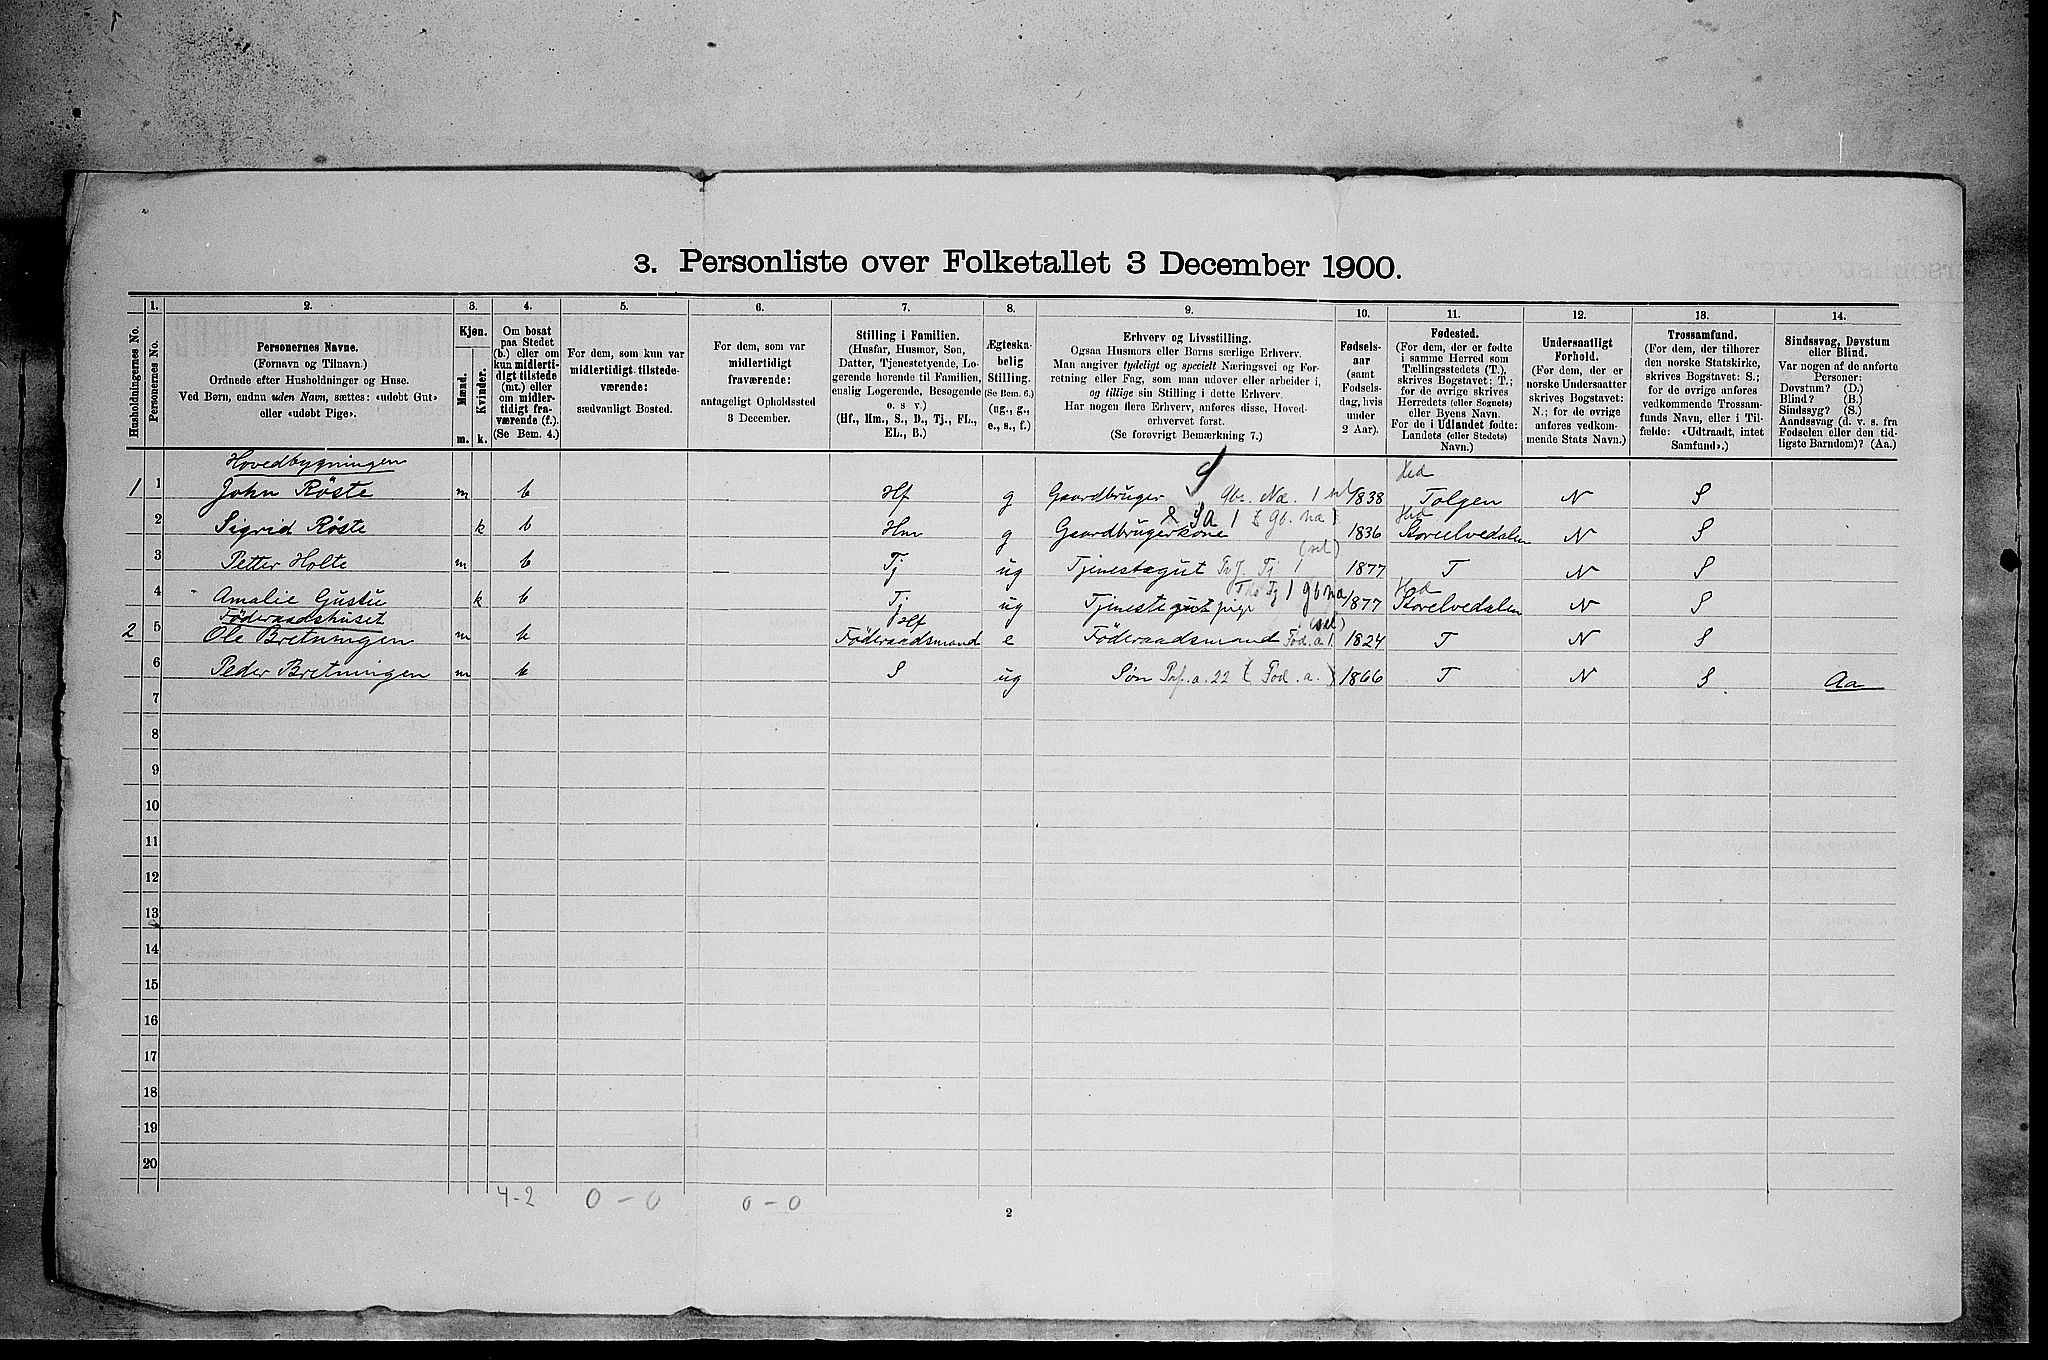 3. Personliste over Folketallet 3 December 1900.
1. 2. 3. 4. 5. 6. 7. 8. 9. 10. 11. 12. 13. 14.
Husholdningernes No.
Personernes No.
Personernes Navne.
(Fornavn og Tilnavn.)
Ordnede efter Husholdninger og Huse.
Ved Børn, endnu uden Navn, sættes: «udøbt Gut»
eller «udøbt Pige».
Kjøn.
Mænd.
Kvinder.
m. k.
Om bosat
paa Stedet
(b.) eller om
kun midlerti-
digt tilstede
(mt.) eller
om midler-
tidigt fra-
værende (f.).
(Se Bem. 4.)
For dem, som kun var
midlertidigt tilstede-
værende:
sædvanligt Bosted.
For dem, som var
midlertidigt
fraværende:
antageligt Opholdssted
3 December.
Stilling i Familien.
(Husfar, Husmor, Søn,
Datter, Tjenestetyende, Lo-
gerende hørende til Familien,
enslig Logerende, Besøgende
o. s. v.)
(Hf., Hm., S., D., Tj., FL.,
EL., B.)
Ægteska-
belig
Stilling.
(Se Bem. 6.)
(ug., g.,
e., s., f.)
Erhverv og Livsstilling.
Ogsaa Husmors eller Børns særlige Erhverv.
Man angiver tydeligt og specielt Næringsvei og For-
retning eller Fag, som man udøver eller arbeider i,
og tillige sin Stilling i dette Erhverv.
Har nogen flere Erhverv, anføres disse, Hoved-
erhvervet først.
(Se forøvrigt Bemærkning 7.)
Fødsels-
aar
(samt
Fødsels-
dag, hvis
under
2 Aar).
Fødested.
(For dem, der er fødte
i samme Herred som
Tællingsstedets (T.),
skrives Bogstavet: T.;
for de øvrige skrives
Herredets (eller Sognets)
eller Byens Navn.
For de i Udlandet fødte:
Landets (eller Stedets)
Navn.)
Undersaatligt
Forhold.
(For dem, der er
norske Undersaatter
skrives Bogstavet:
N.; for de øvrige
anføres vedkom-
mende Stats Navn.)
Trossamfund.
(For dem, der tilhører
den norske Statskirke,
skrives Bogstavet: S.;
for de øvrige anføres
vedkommende Trossam-
funds Navn, eller i Til-
fælde: «Udtraadt, intet
Samfund».)
Sindssvag, Døvstum
eller Blind.
Var nogen af de anførte
Personer:
Døvstum? (D.)
Blind? (B.)
Sindssyg? (S.)
Aandssvag (d. v. s. fra
Fødselen eller den tid-
ligste Barndom)? (Aa.)
Hovedbygningen
1 1 John Röste m b Hf g Gaardbruger 1838 Tolgen N S
2 Sigrid Röste k b Hm g Gaardbrugerkone 1836 Storelvedalen N S
3 Petter Holte m b Tj ug Tjenestegut Tj 1877 T N S
4 Amalie Gustu k b Tj ug Tjenestegut pige 1877 Storelvedalen N S
Föderaadshuset
Hf
2 5 Ole Bretningen m b Föderaadsmand e Föderaadsmand Fod. a 1. 1824 T N S
6 Peder Bretningen m b S ug Søn Prf. a. 22 (Fod. a.) 1866 T N S Aa
7
8
9
10
11
12
13
14
15
16
17
18
19
20
4-2 0-0 0-0
2